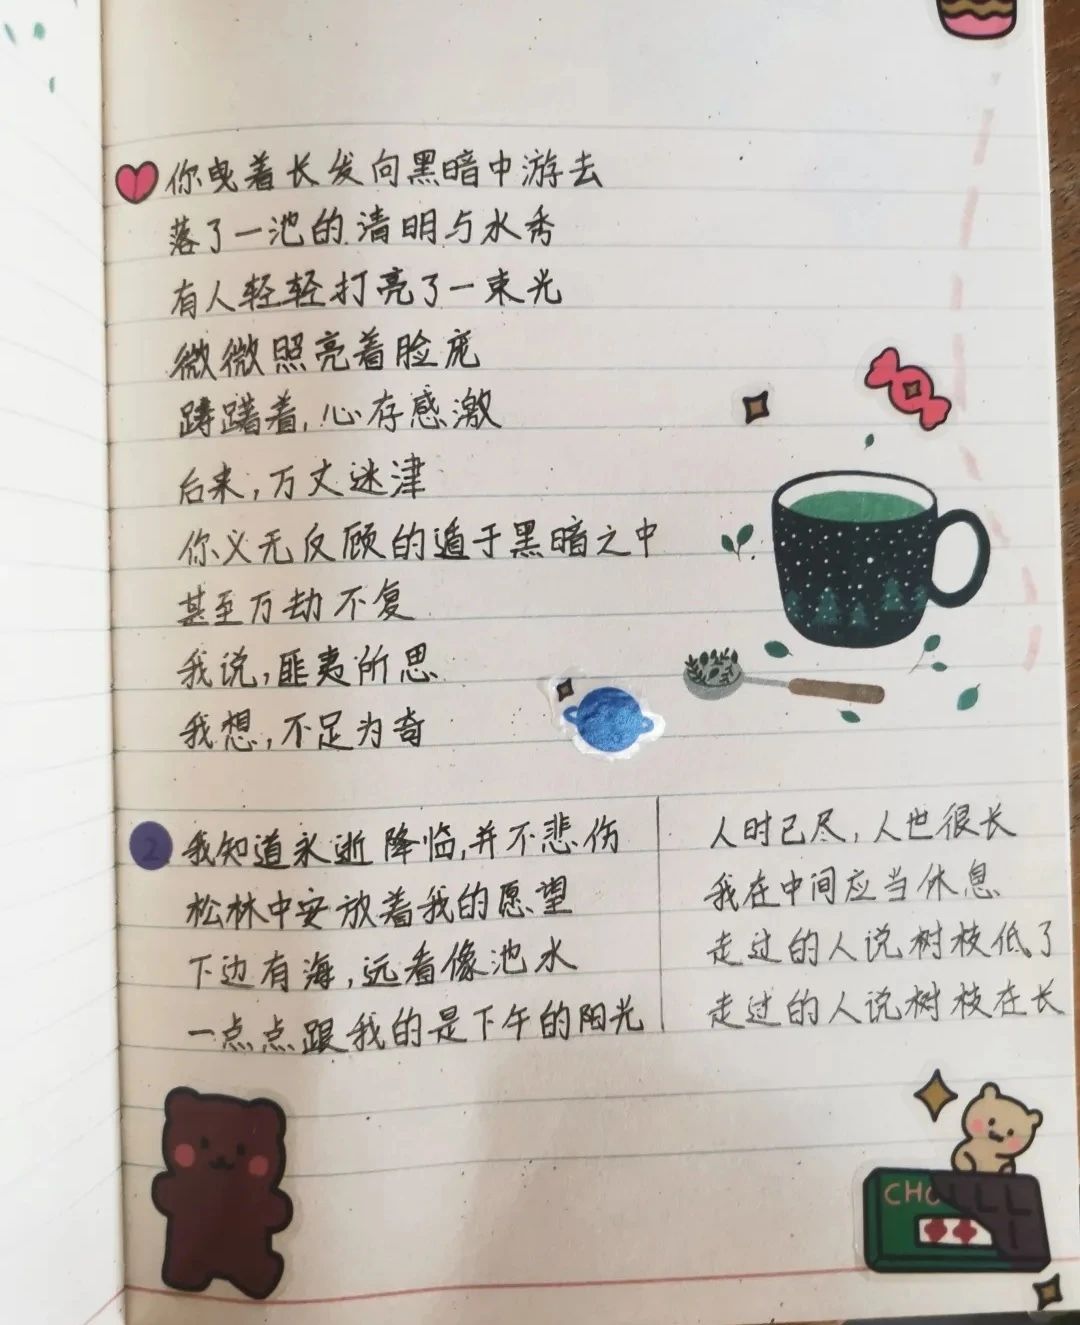 你曳着长发向黑暗中游去
落了一池的清明与水秀
有人轻轻打亮了一束光
微微照亮着脸庞
踌躇着,心存感激
后来,万丈迷津
你义无反顾的遁于黑暗之中
甚至万劫不复
我说,匪夷所思
我想,不足为奇
2 我知道永逝降临,并不悲伤
松林中安放着我的愿望
下边有海,远看像池水
一点点跟我的是下午的阳光
人时已尽,人世很长
我在中间应当休息
走过的人说树枝低了
走过的人说树枝在长
CHO